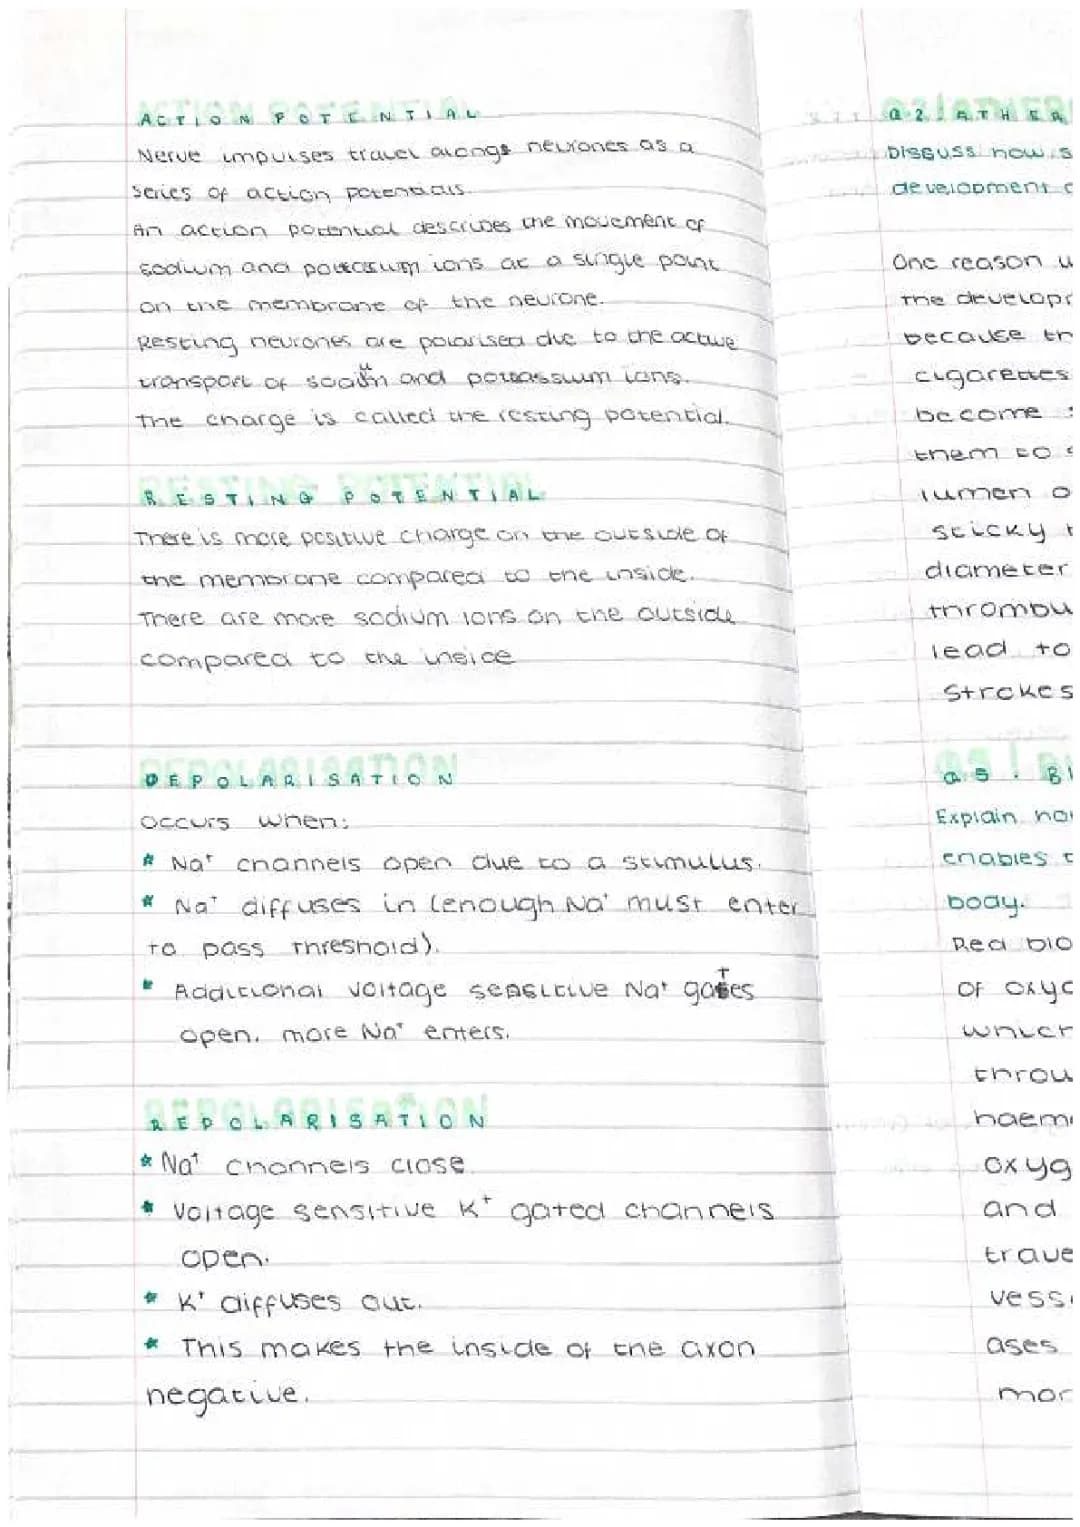 ACTION POTENTIAL
Nerve impulses travel alongs neurones as a
series of action potentials.
An action potential describes the movement of
sodium and potassium ions at a single point
on the membrane of the neurone.
Resting neurones are polarised due to the active
transport of sodium and potassium ions.
The charge is called the resting potential.
RESTING POTENTIAL
There is more positive charge on the outside of
the membrane compared to the inside.
There are more sodium ions on the outside
compared to the inside
DEPOLARISATION
occurs when:
* Na⁺ channels open due to a stimulus.
* Na⁺ diffuses in (enough Na⁺ must enter
to pass threshold).
* Additional voltage sensitive Na⁺ gates
open. more Na⁺ enters.
REPOLARISATION
* Na⁺ channels close.
* Voltage sensitive K⁺ gated channels
open.
* K⁺ diffuses out.
* This makes the inside of the axon
negative.
Q.2. ATHER
Discuss how s
development
One reason
the develop
because th
cigarettes
become
them to s
lumen o
sticky
diameter
thrombu
lead to
strokes
Q.5. Bl
Explain ho
enables t
body.
Red blo
of oxyg
which
throu
haem
oxyg
and
trave
vess
ases
mor